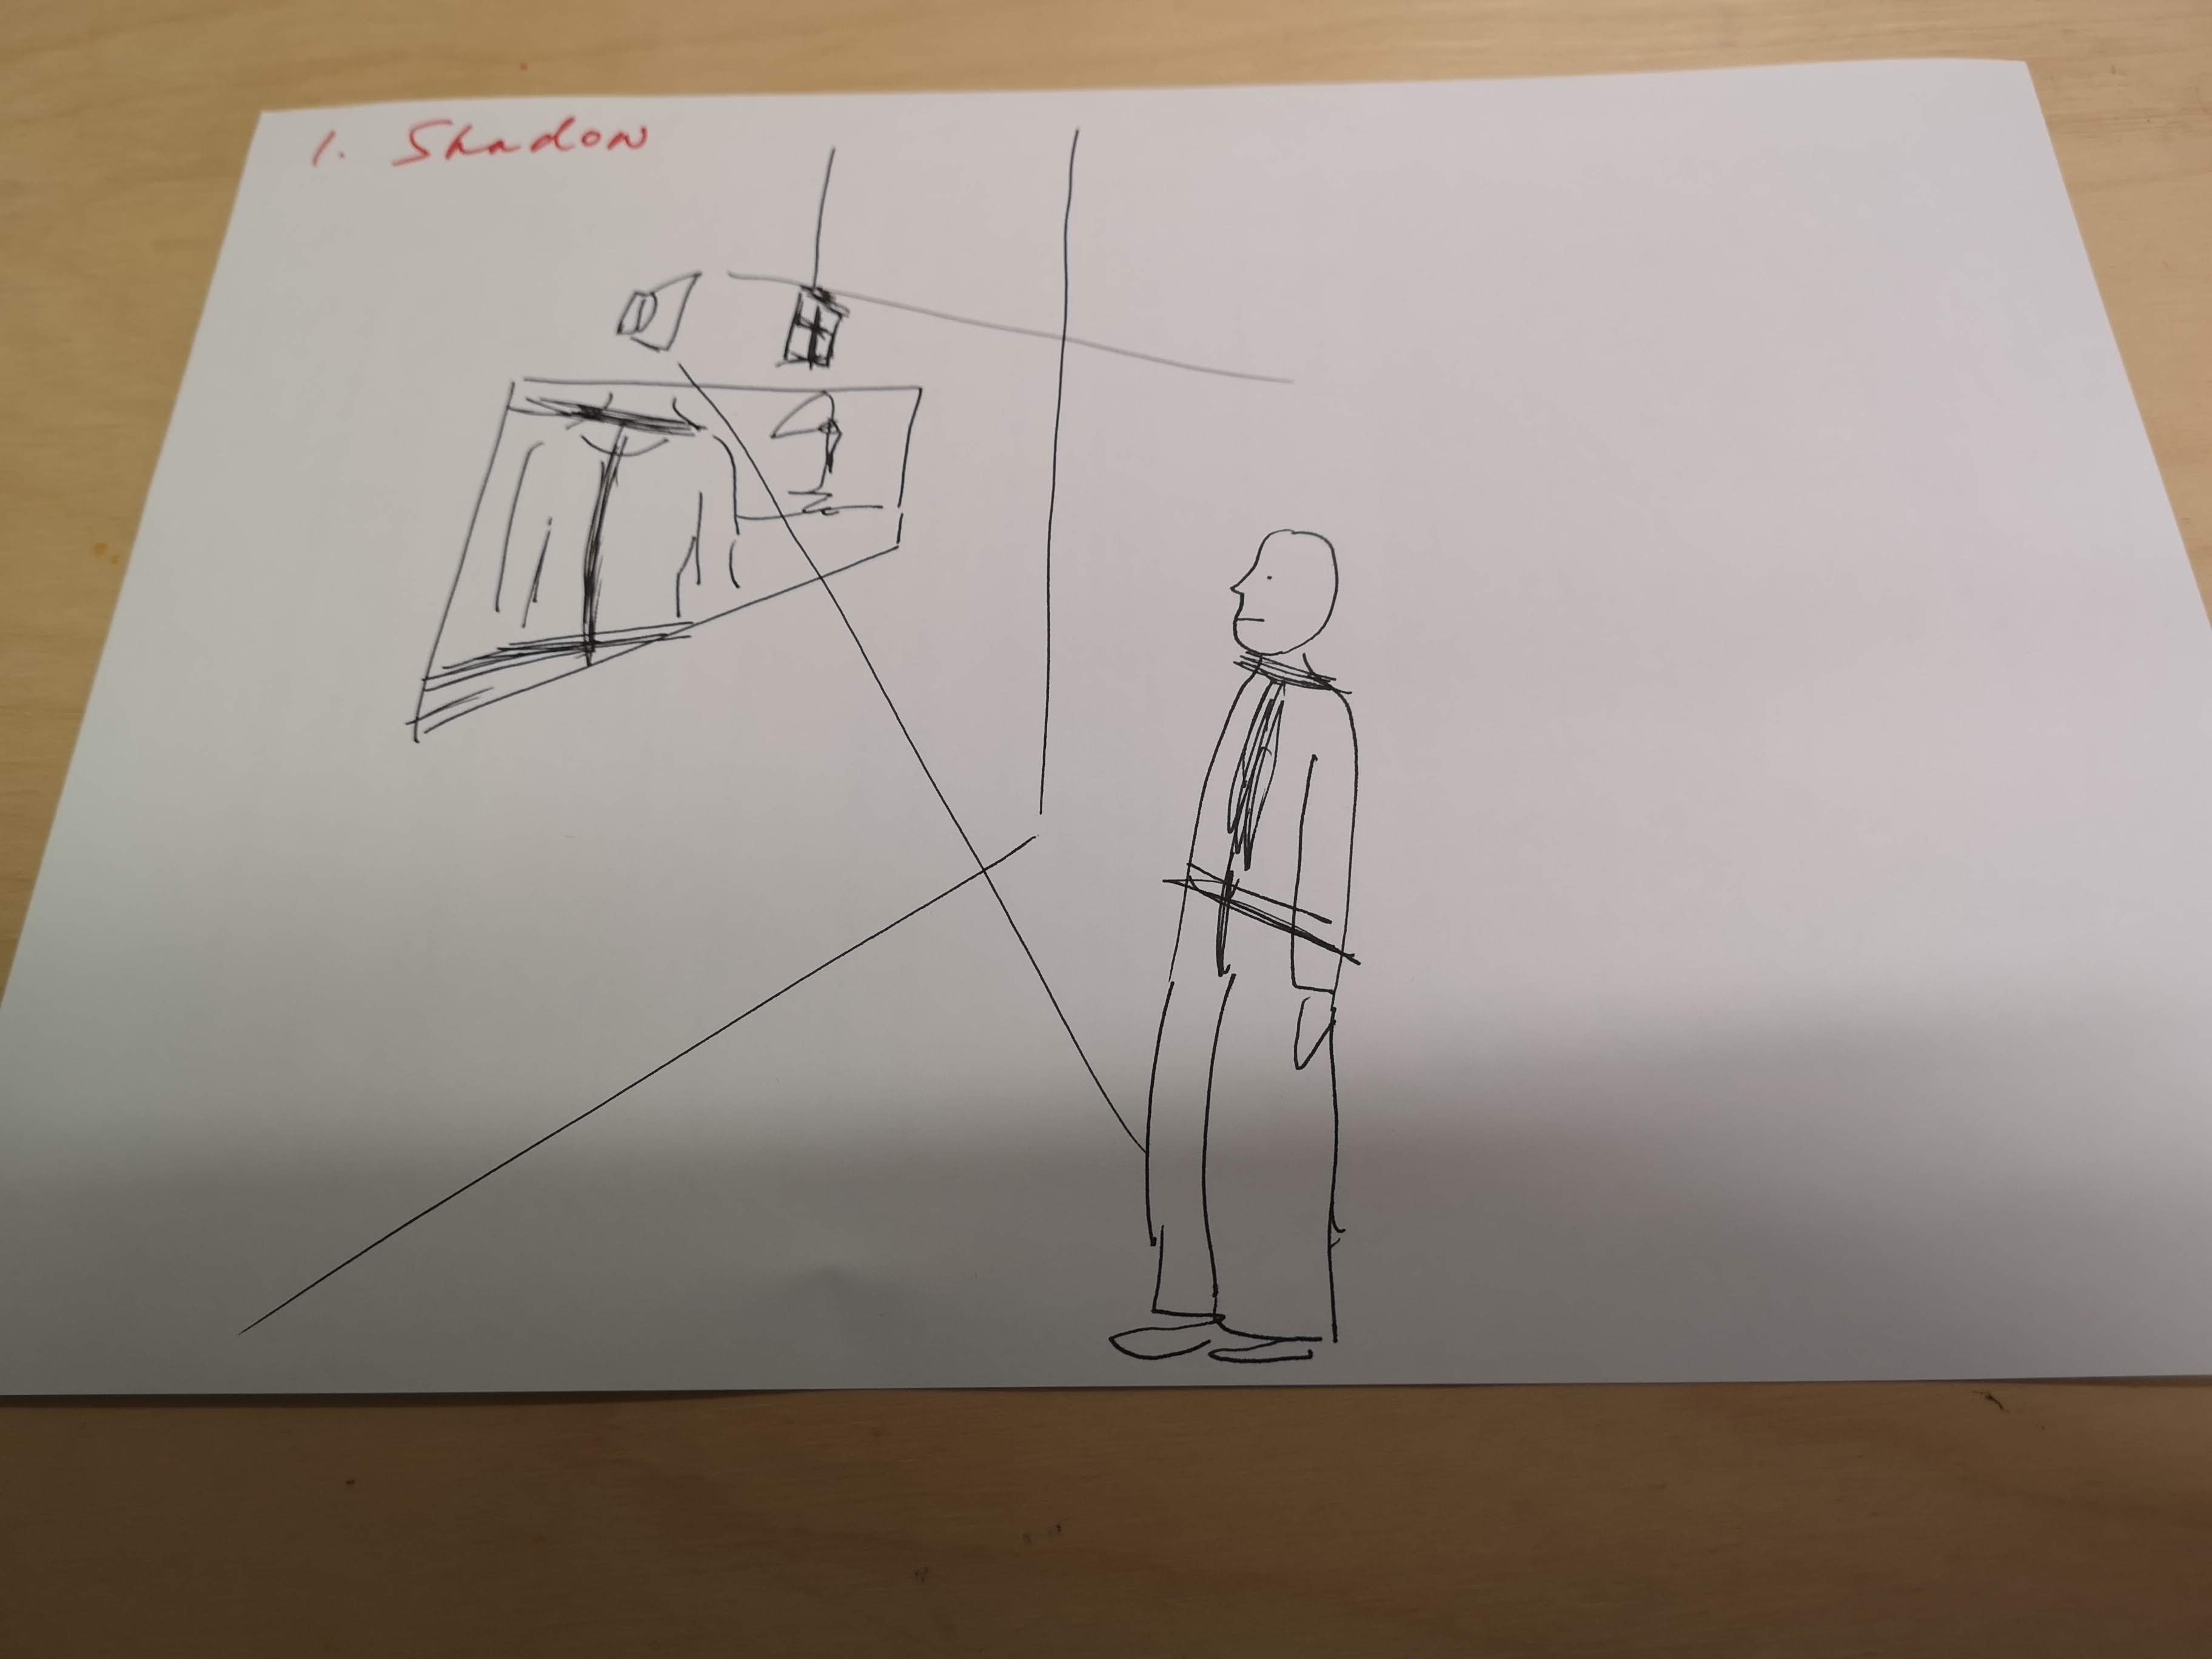 1. Shadow